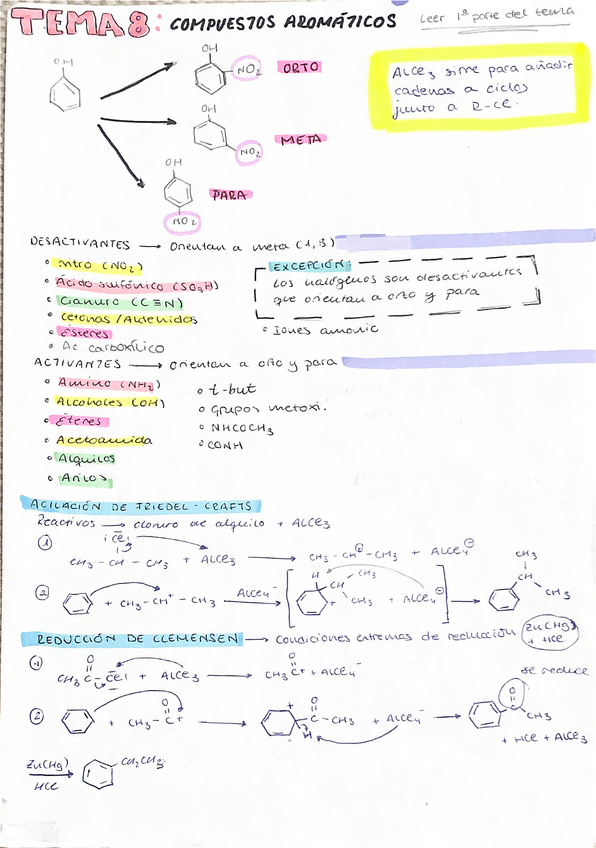 TEMA 8: COMPUESTOS AROMÁTICOS
Leer 1ª parte del tema
OH
OH
NO₂ ORTO
AlCl₃ sirve para añadir
cadenas a ciclos
junto a R-Cl.
OH
NO₂ META
OH
PARA
NO₂
DESACTIVANTES → Orientan a meta (1,3)
Nitro (NO₂)
Ácido sulfónico (SO₃H)
Cianuro (C≡N)
Cetonas / Aldehidos
Ésteres
Ac. carboxílico
EXCEPCIÓN:
Los halógenos son desactivantes
que orientan a orto y para
Iones amonic
ACTIVANTES → orientan a orto y para
Amino (NH₂)
Alcoholes (OH)
Éteres
Acetoamida
Alquilos
Arilos
t-but
Grupos metoxi.
NHCOCH₃
CONH
ACILACIÓN DE FRIEDEL-CRAFTS
Reactivos → cloruro de alquilo + AlCl₃
① Cl
CH₃ - CH - CH₃ + AlCl₃ → CH₃ - CH⊕ - CH₃ + AlCl₄⊖
② + CH₃-CH⁺-CH₃ AlCl₄⁻ → H CH CH₃ CH₃ + AlCl₄⊖ → CH₃ CH CH₃
REDUCCIÓN DE CLEMENSEN → condiciones extremas de reducción Zn(Hg) + HCl
① O
CH₃ C - Cl + AlCl₃ → CH₃ C⁺ O + AlCl₄⁻
se reduce
② + CH₃ - C⁺ O → + O C - CH₃ H + AlCl₄⁻ → O C CH₃
+ HCl + AlCl₃
Zn(Hg) → CH₂CH₃
HCl